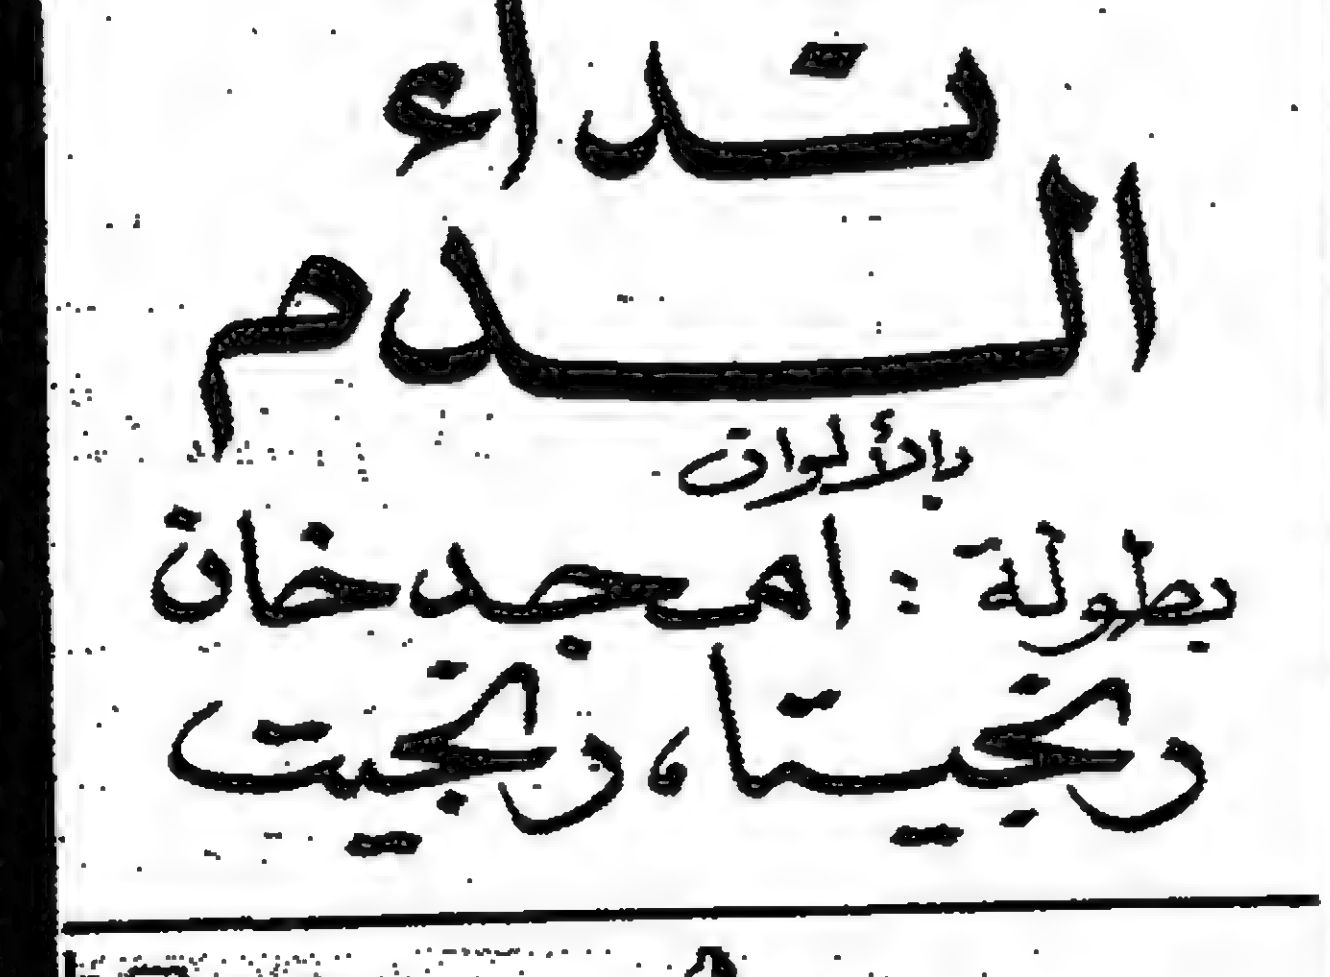 نداء
الدم
بالألوان
بطولة : امجد خان
رنجيتا ، رنجيت